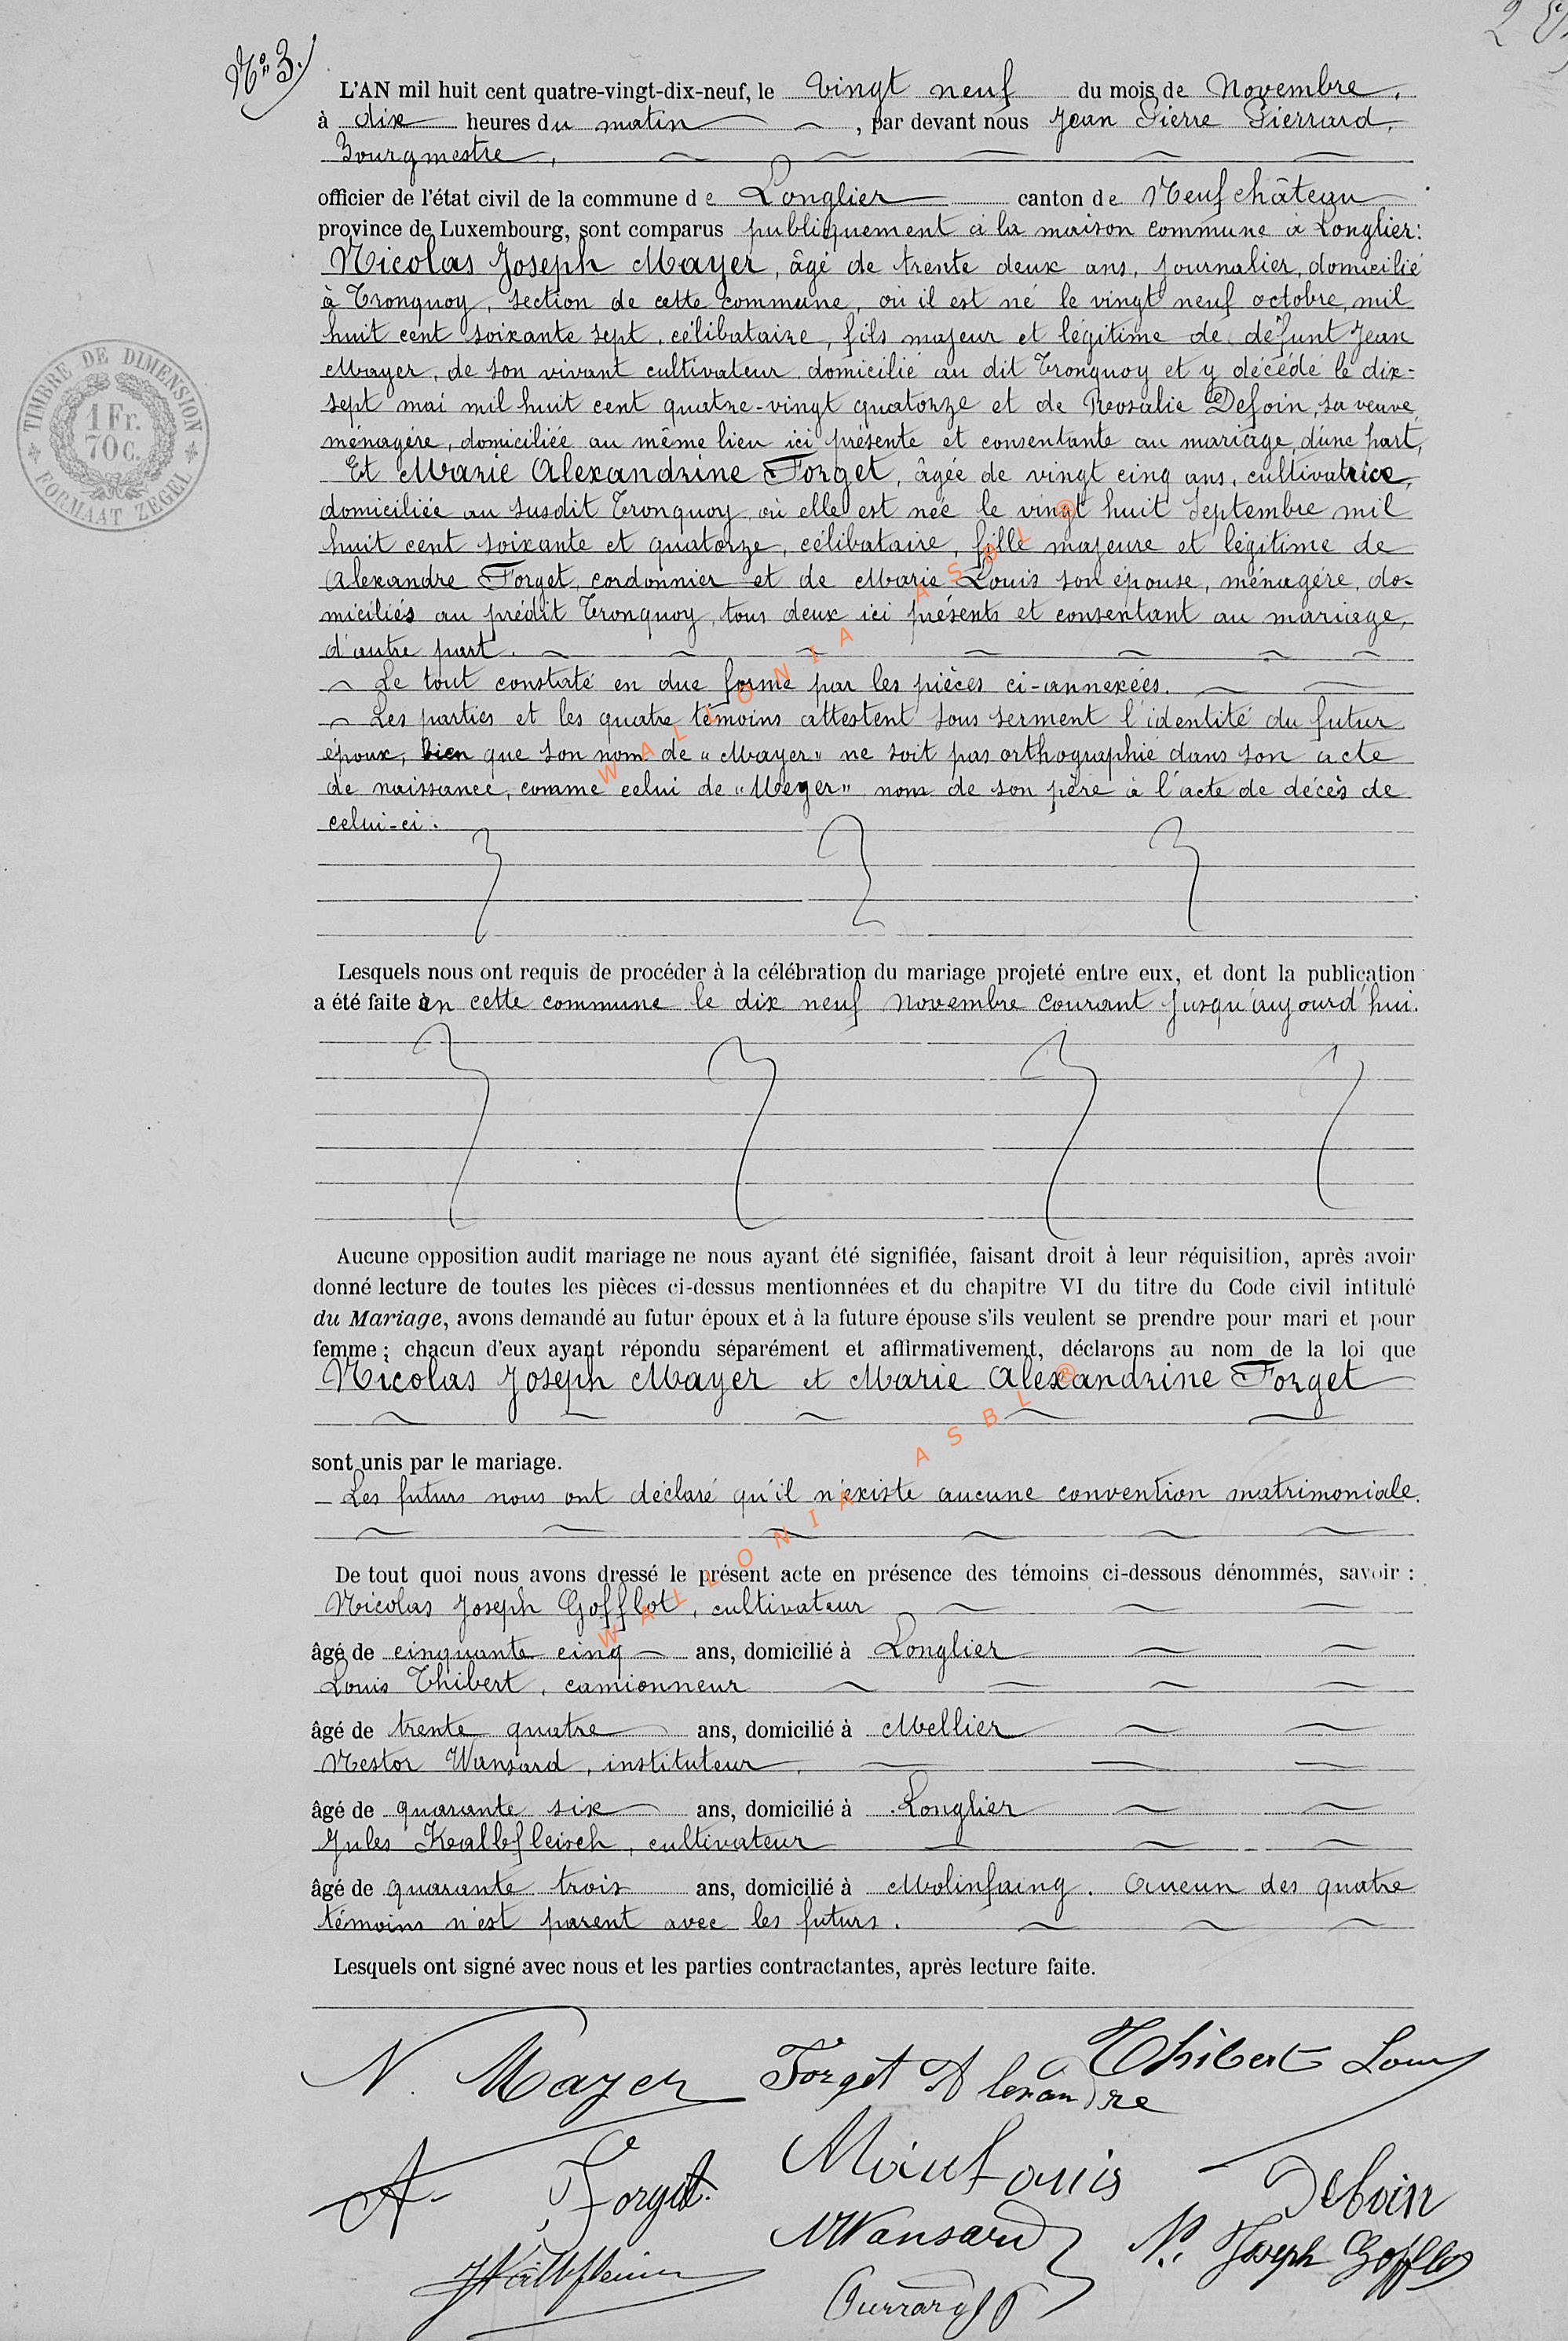 N° 3.
L'AN mil huit cent quatre-vingt-dix-neuf, le vingt neuf du mois de Novembre,
à dix heures du matin, par devant nous Jean Pierre Pierrard,
Bourgmestre,
officier de l'état civil de la commune de Longlier canton de Neufchâteau
province de Luxembourg, sont comparus publiquement à la maison commune à Longlier:
Nicolas Joseph Mayer, âgé de trente deux ans, journalier, domicilié
à Tronquoy, section de cette commune, où il est né le vingt neuf octobre, mil
huit cent soixante sept, célibataire, fils majeur et légitime de défunt Jean
Mayer, de son vivant cultivateur, domicilié au dit Tronquoy et y décédé le dix-
sept mai mil huit cent quatre-vingt quatorze et de Rosalie Defoin, sa veuve
ménagère, domiciliée au même lieu ici présente et consentante au mariage, d'une part,
Et Marie Alexandrine Forget, âgée de vingt cinq ans, cultivatrice,
domiciliée au susdit Tronquoy où elle est née le vingt huit Septembre mil
huit cent soixante et quatorze, célibataire, fille majeure et légitime de
Alexandre Forget, cordonnier et de Marie Louis son épouse, ménagère, do-
miciliés au prédit Tronquoy, tous deux ici présents et consentant au mariage,
d'autre part.
Le tout constaté en due forme par les pièces ci-annexées.
Les parties et les quatre témoins attestent sous serment l'identité du futur
époux, bien que son nom de "Mayer" ne soit pas orthographié dans son acte
de naissance, comme celui de "Meyer" nom de son père à l'acte de décès de
celui-ci.
Lesquels nous ont requis de procéder à la célébration du mariage projeté entre eux, et dont la publication
a été faite en cette commune le dix neuf Novembre courant jusqu'aujourd'hui.
Aucune opposition audit mariage ne nous ayant été signifiée, faisant droit à leur réquisition, après avoir
donné lecture de toutes les pièces ci-dessus mentionnées et du chapitre VI du titre du Code civil intitulé
du Mariage, avons demandé au futur époux et à la future épouse s'ils veulent se prendre pour mari et pour
femme; chacun d'eux ayant répondu séparément et affirmativement, déclarons au nom de la loi que
Nicolas Joseph Mayer et Marie Alexandrine Forget
sont unis par le mariage.
Les futurs nous ont déclaré qu'il n'existe aucune convention matrimoniale.
De tout quoi nous avons dressé le présent acte en présence des témoins ci-dessous dénommés, savoir :
Nicolas Joseph Gofflot, cultivateur
âgé de cinquante cinq ans, domicilié à Longlier
Louis Thibert, camionneur
âgé de trente quatre ans, domicilié à Mellier
Nestor Wansard, instituteur,
âgé de quarante six ans, domicilié à Longlier
Jules Kalbfleisch, cultivateur
âgé de quarante trois ans, domicilié à Molinfaing. Aucun des quatre
témoins n'est parent avec les futurs.
Lesquels ont signé avec nous et les parties contractantes, après lecture faite.
N. Mayer Forget Alexandre Thibert Louis
A. Forget Marie Louis Defoin
NWansard N. Joseph Gofflot
TIMBRE DE DIMENSION
1 Fr.
70 c.
FORMAAT ZEGEL
WALLONIA ASBL ®
WALLONIA ASBL ®